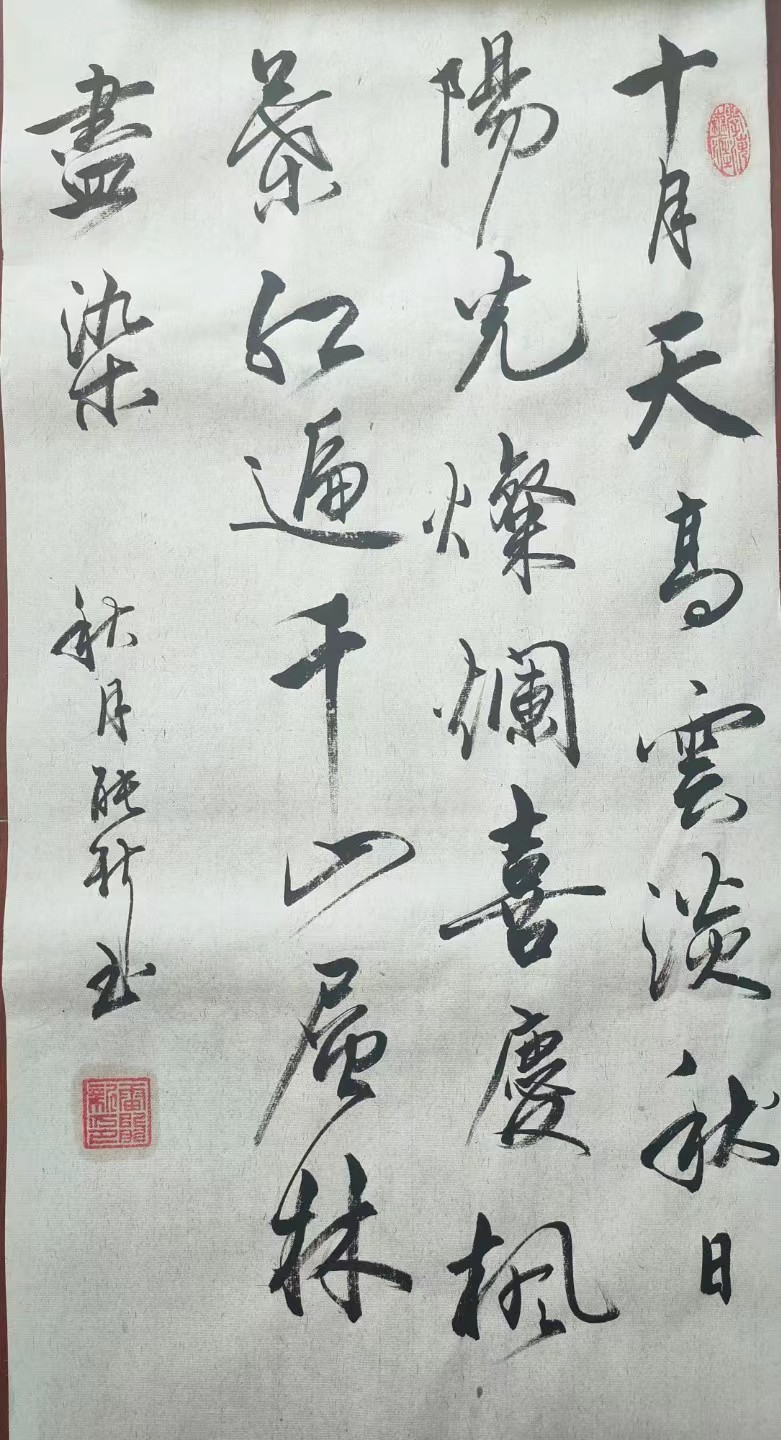 十月天高雲淡秋日
陽光燦爛喜慶楓
葉紅遍千山層林
盡染
秋月